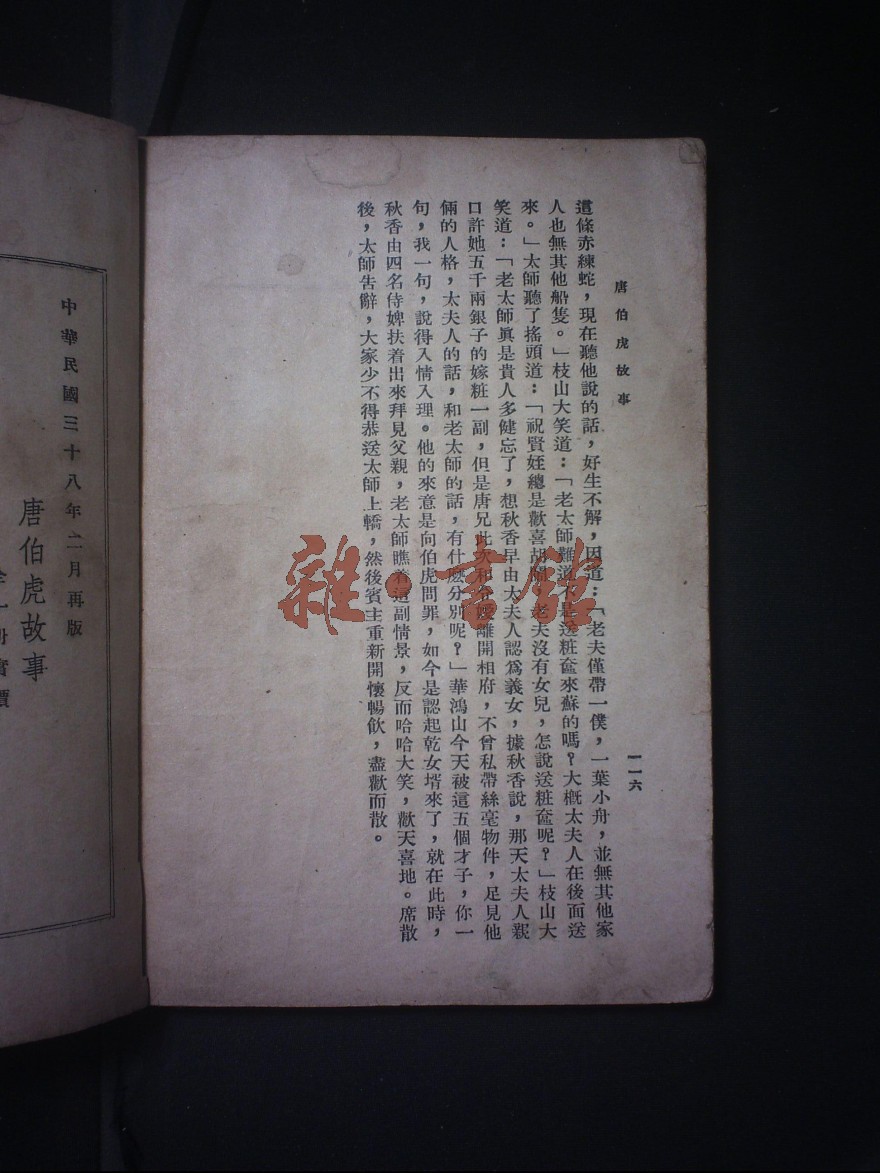 唐伯虎故事
一一六
這條赤練蛇，現在聽他說的話，好生不解，因道：「老夫僅帶一僕，一葉小舟，並無其他家
人也無其他船隻。」枝山大笑道：「老太師難道不是送粧奩來蘇的嗎？大概太夫人在後面送
來。」太師聽了搖頭道：「祝賢姪總是歡喜胡鬧，老夫沒有女兒，怎說送粧奩呢？」枝山大
笑道：「老太師眞是貴人多健忘了，想秋香早由太夫人認爲義女，據秋香說，那天太夫人親
口許她五千兩銀子的嫁粧一副，但是唐兄此次和 離開相府，不曾私帶絲毫物件，足見他
倆的人格，太夫人的話，和老太師的話，有什麽分別呢？」華鴻山今天被這五個才子，你一
句，我一句，說得入情入理。他的來意是向伯虎問罪，如今是認起乾女壻來了，就在此時，
秋香由四名侍婢扶着出來拜見父親，老太師瞧着這副情景，反而哈哈大笑，歡天喜地。席散
後，太師告辭，大家少不得恭送太師上轎，然後賓主重新開懷暢飲，盡歡而散。
雜·書館
中華民國三十八年二月再版
唐伯虎故事